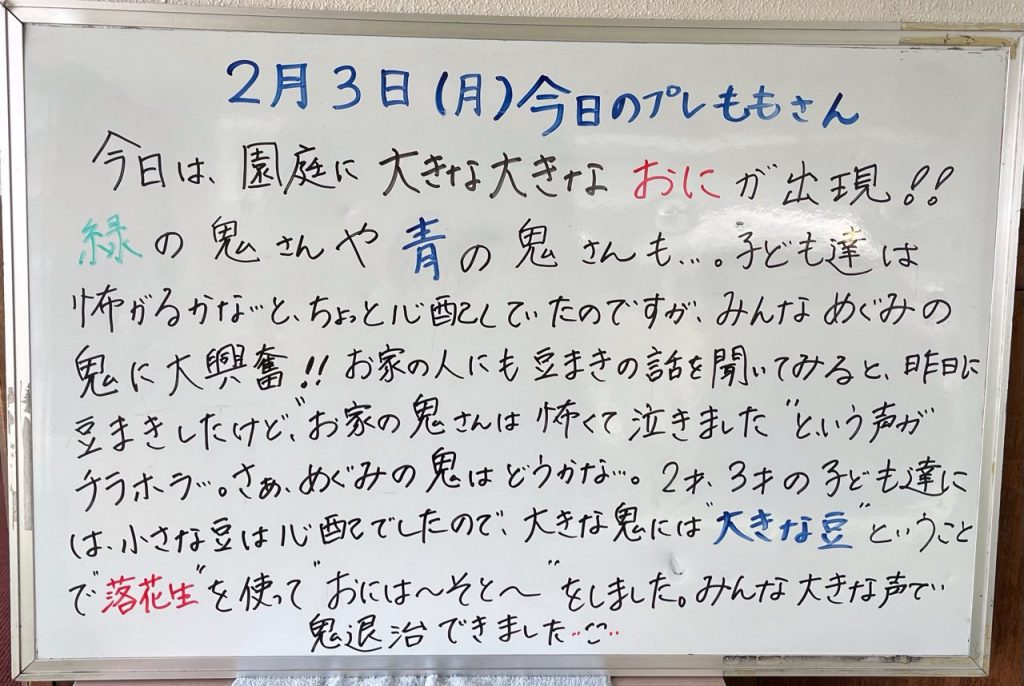 2月3日(月)今日のプレももさん
今日は、園庭に大きな大きなおにが出現!!
緑の鬼さんや青の鬼さんも…。子ども達は
怖がるかな…と、ちょっと心配していたのですが、みんなめぐみの
鬼に大興奮!!お家の人にも豆まきの話を聞いてみると、昨日に
豆まきしたけど、"お家の鬼さんは怖くて泣きました"という声が
チラホラ…。さぁ、めぐみの鬼はどうかな…。2才、3才の子ども達に
は、小さな豆は心配でしたので、大きな鬼には"大きな豆"ということ
で"落花生"を使って"おには〜そと〜"をしました。みんな大きな声で…
鬼退治できました